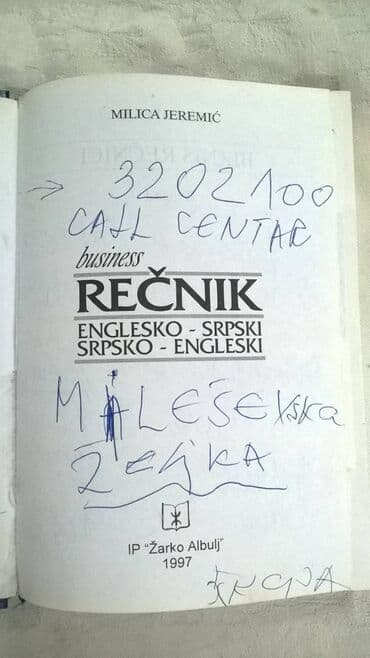 MILICA JEREMIĆ
→ 3202100
CALL CENTAR
business
REČNIK
ENGLESKO - SRPSKI
SRPSKO - ENGLESKI
MALEŠEVska
ŽELJKA
IP "Žarko Albulj"
1997